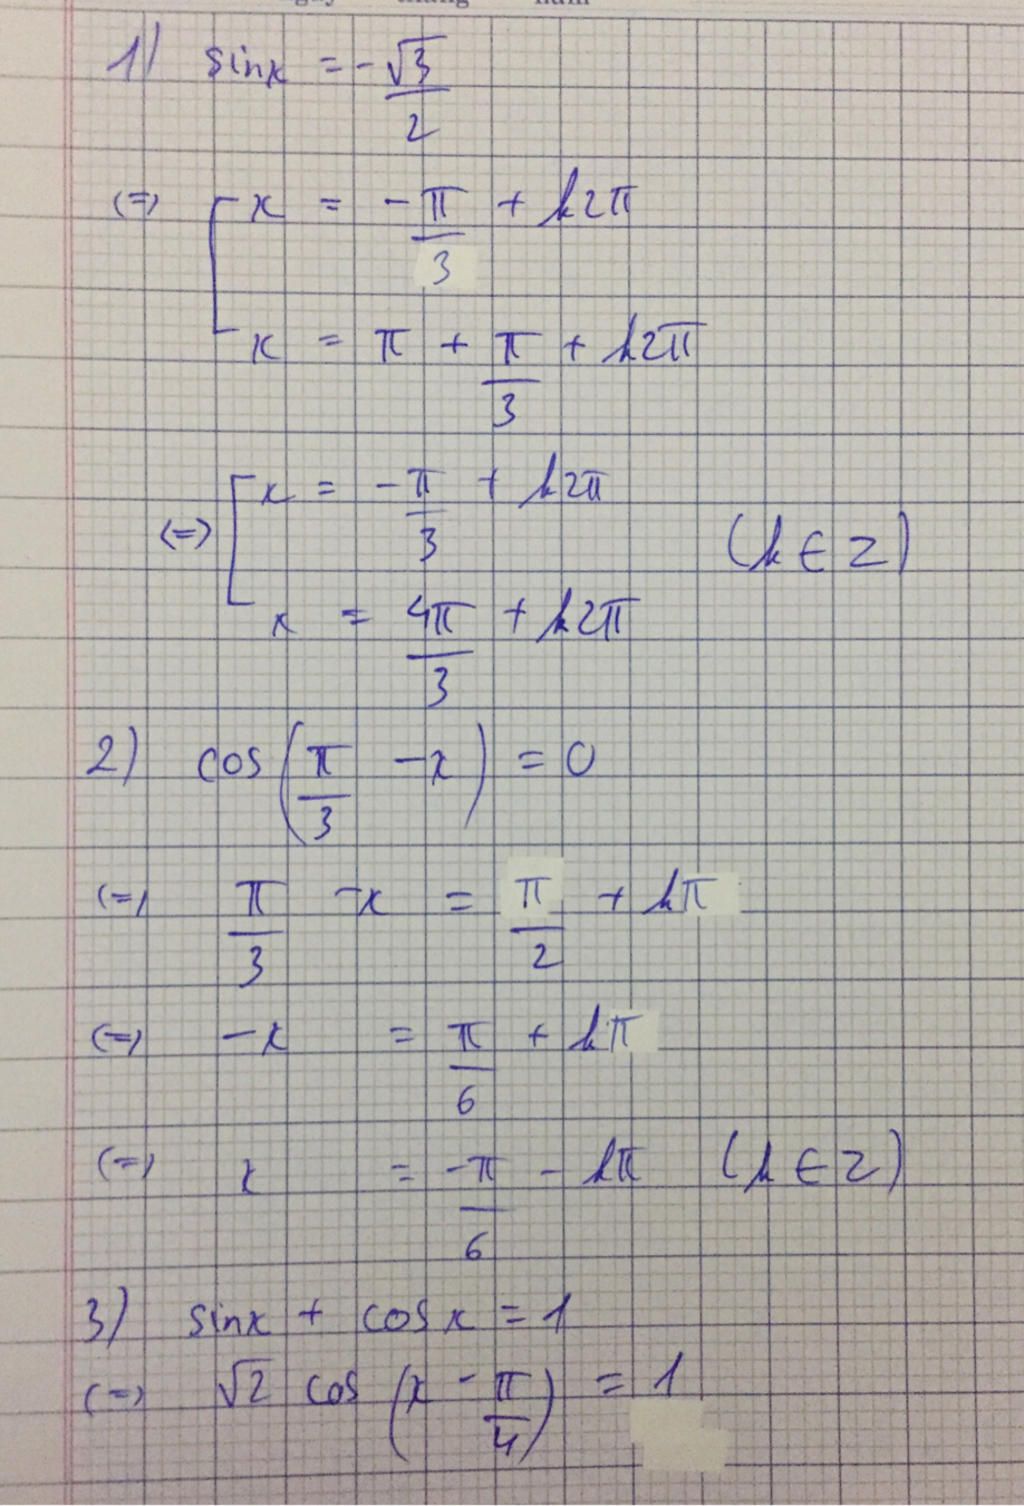 ngày tháng năm
1) sinx = -√3/2
(=) [ x = -π/3 + k2π
x = π + π/3 + k2π
(=) [ x = -π/3 + k2π
(k ∈ Z)
x = 4π/3 + k2π
2) cos(π/3 - x) = 0
(=) π/3 - x = π/2 + kπ
(=) -x = π/6 + kπ
(=) x = -π/6 - kπ (k ∈ Z)
3) sinx + cosx = 1
(=) √2 cos(x - π/4) = 1